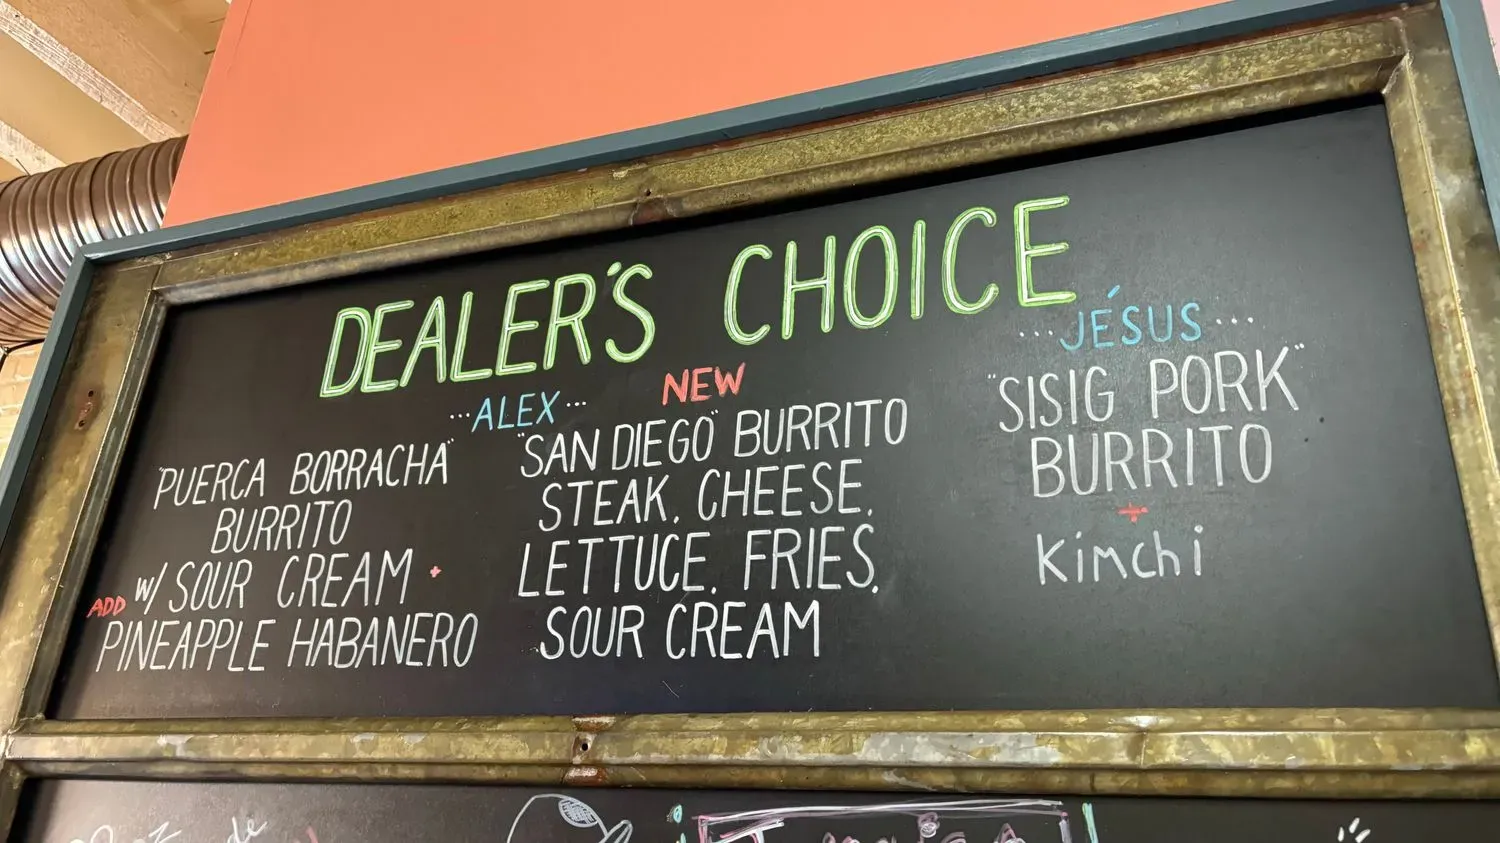 DEALER'S CHOICE
...ALEX...
"PUERCA BORRACHA"
BURRITO
W/ SOUR CREAM +
ADD PINEAPPLE HABANERO
NEW
"SAN DIEGO" BURRITO
STEAK, CHEESE,
LETTUCE, FRIES,
SOUR CREAM
...JÉSUS...
"SISIG PORK"
BURRITO
+
Kimchi
de